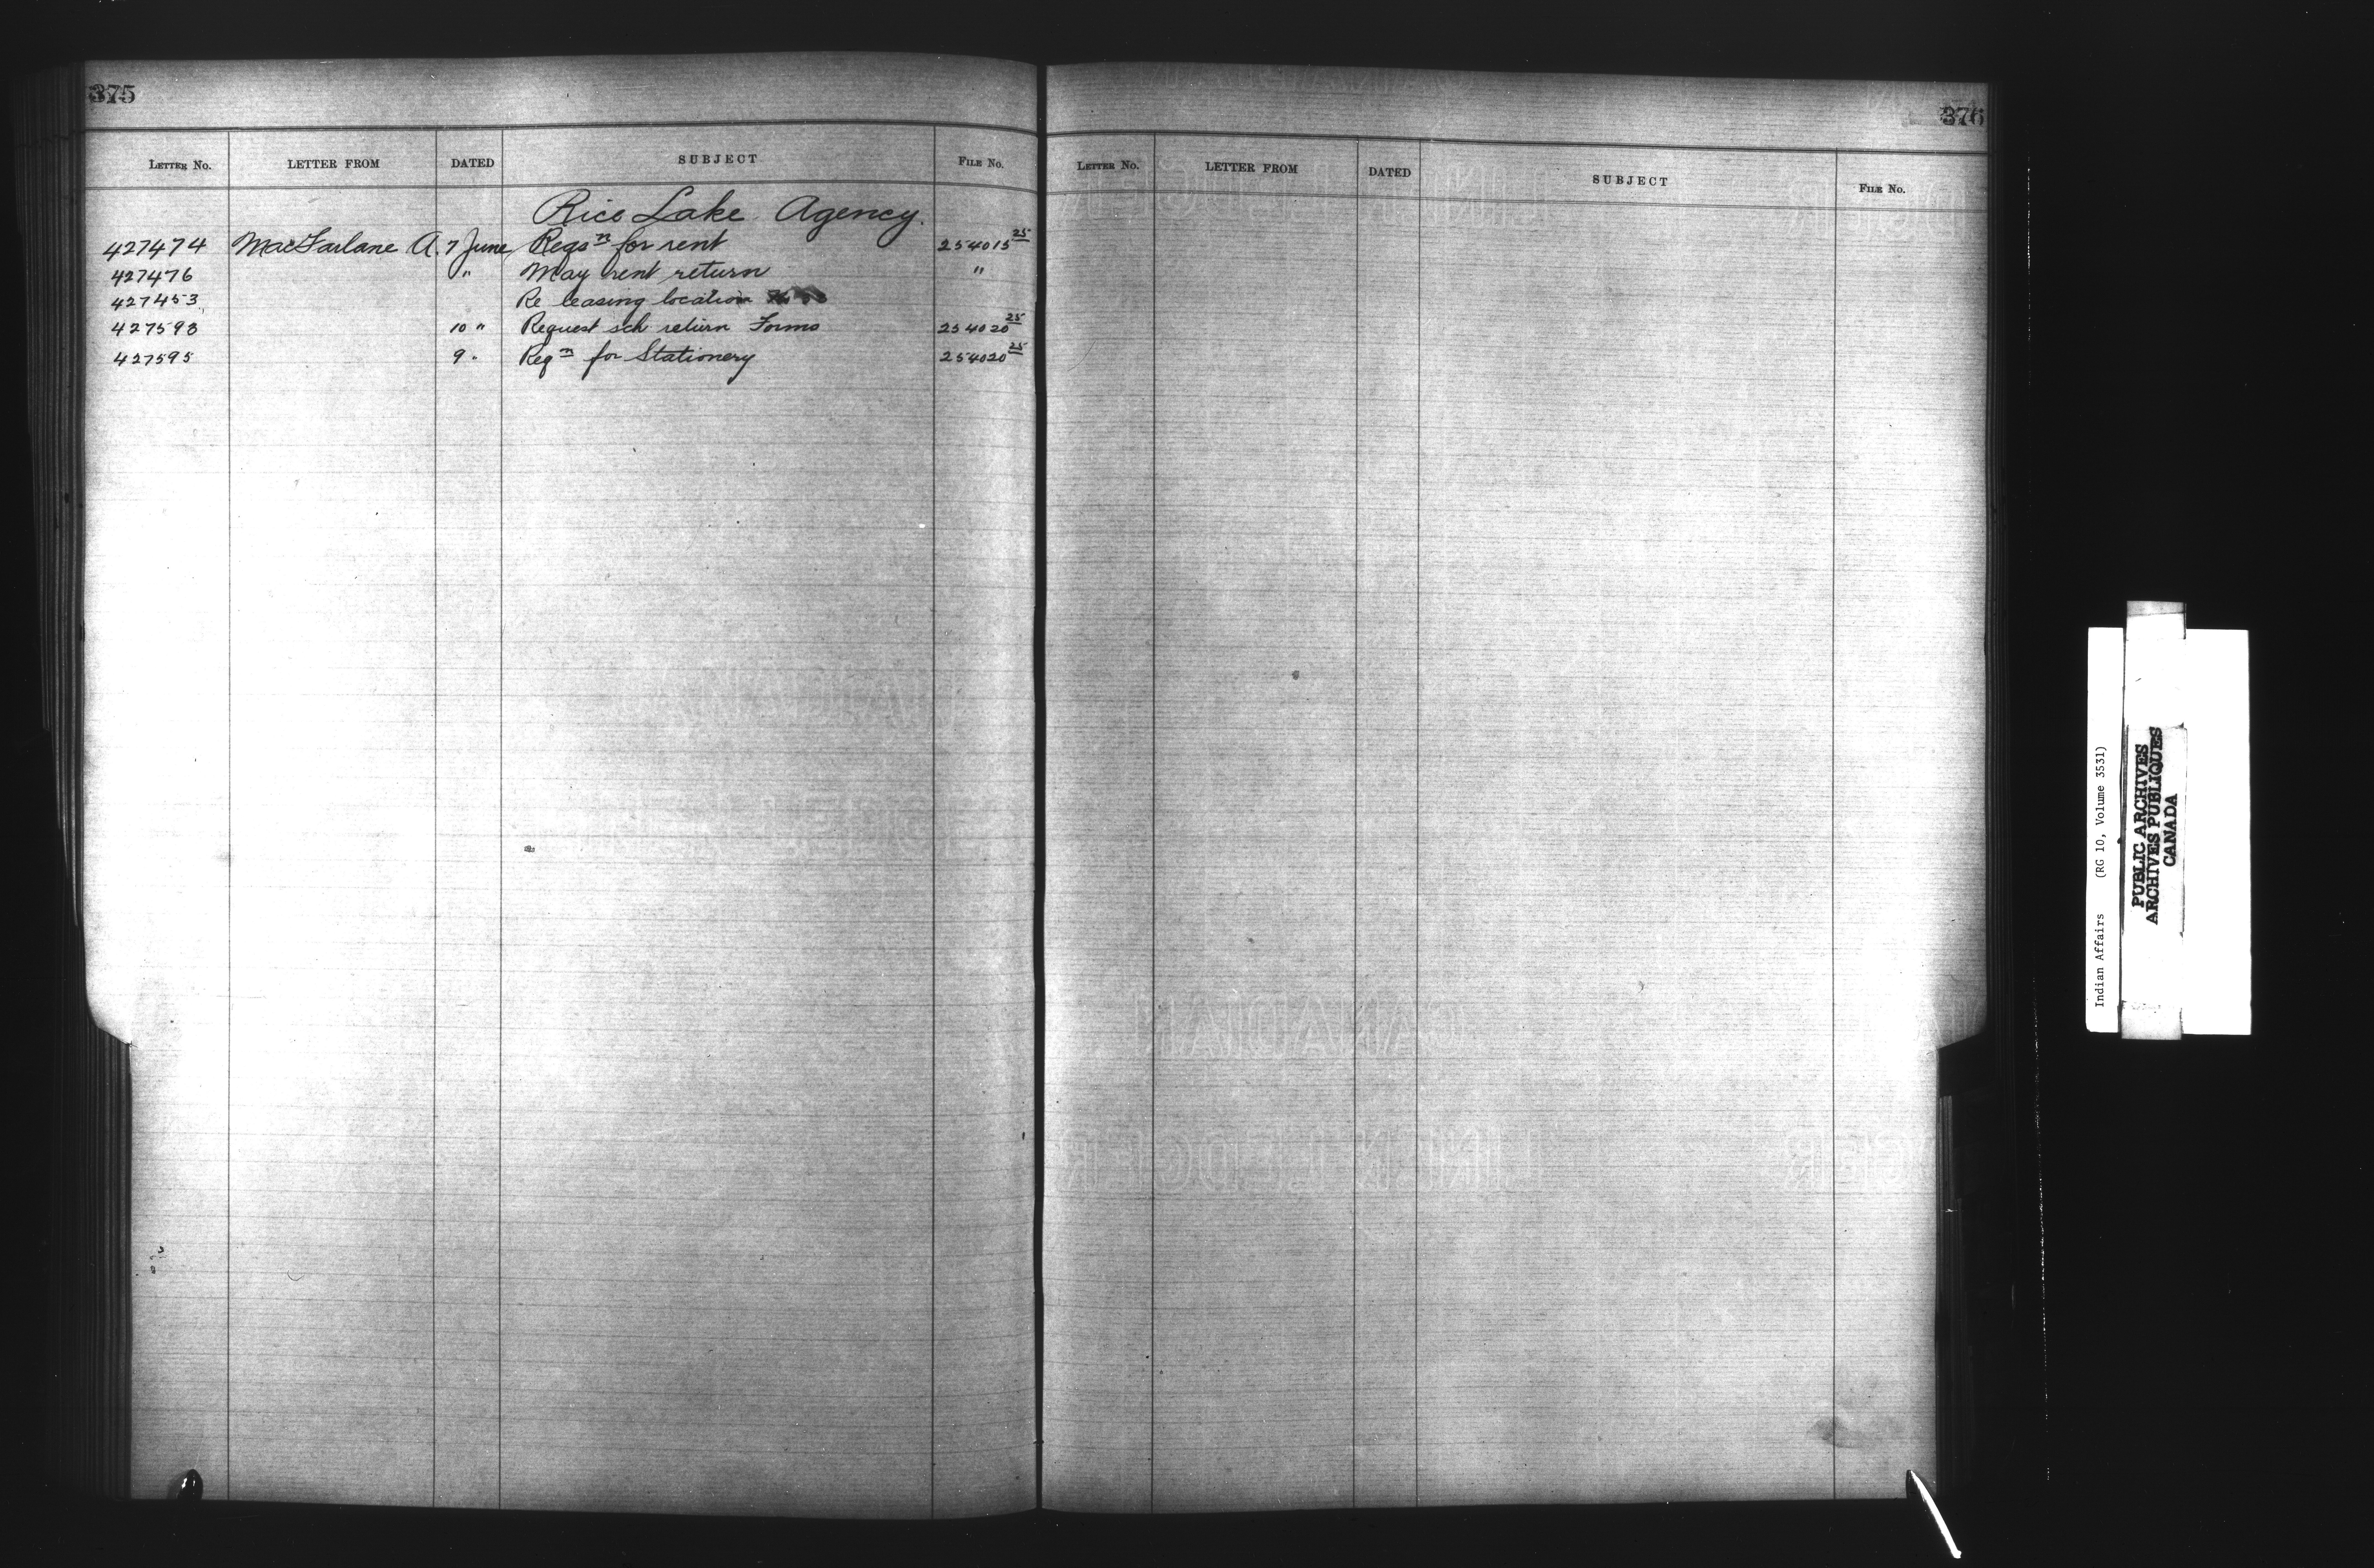 375
LETTER NO. LETTER FROM DATED SUBJECT FILE NO.
Rice Lake Agency.
427474 MacFarlane A. 7 June Reqsn for rent 254015 25
427476 " May rent return "
427453 Re leasing location
427593 10 " Request sch. return Forms 254020 25
427595 9 " Reqn for Stationery 254020 25
376
LETTER NO. LETTER FROM DATED SUBJECT FILE NO.
CANADIAN
LINEN LEDGER
Indian Affairs (RG 10, Volume 3531)
PUBLIC ARCHIVES
ARCHIVES PUBLIQUES
CANADA